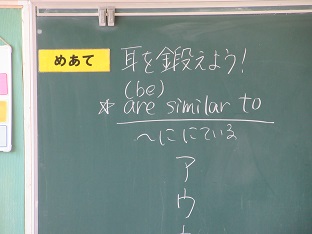 めあて 耳を鍛えよう!
(be)
* are similar to
~ににている
ア
ウ